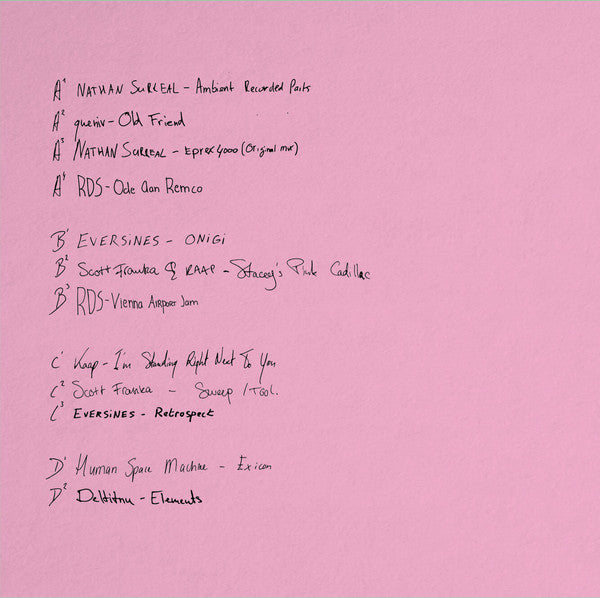 A1 NATHAN SURREAL - Ambient Recorded Parts
A2 queniv - Old Friend
A3 NATHAN SURREAL - Eprex4000 (Original mix)
A4 RDS - Ode Aan Remco
B1 EVERSINES - ONIGI
B2 Scott Franka & RAAP - Stacey's Pink Cadillac
B3 RDS - Vienna Airport Jam
C1 Kaap - I'm Standing Right Next To You
C2 Scott Franka - Sweep / Tool.
C3 EVERSINES - Retrospect
D1 Human Space Machine - Exicon
D2 - Elements